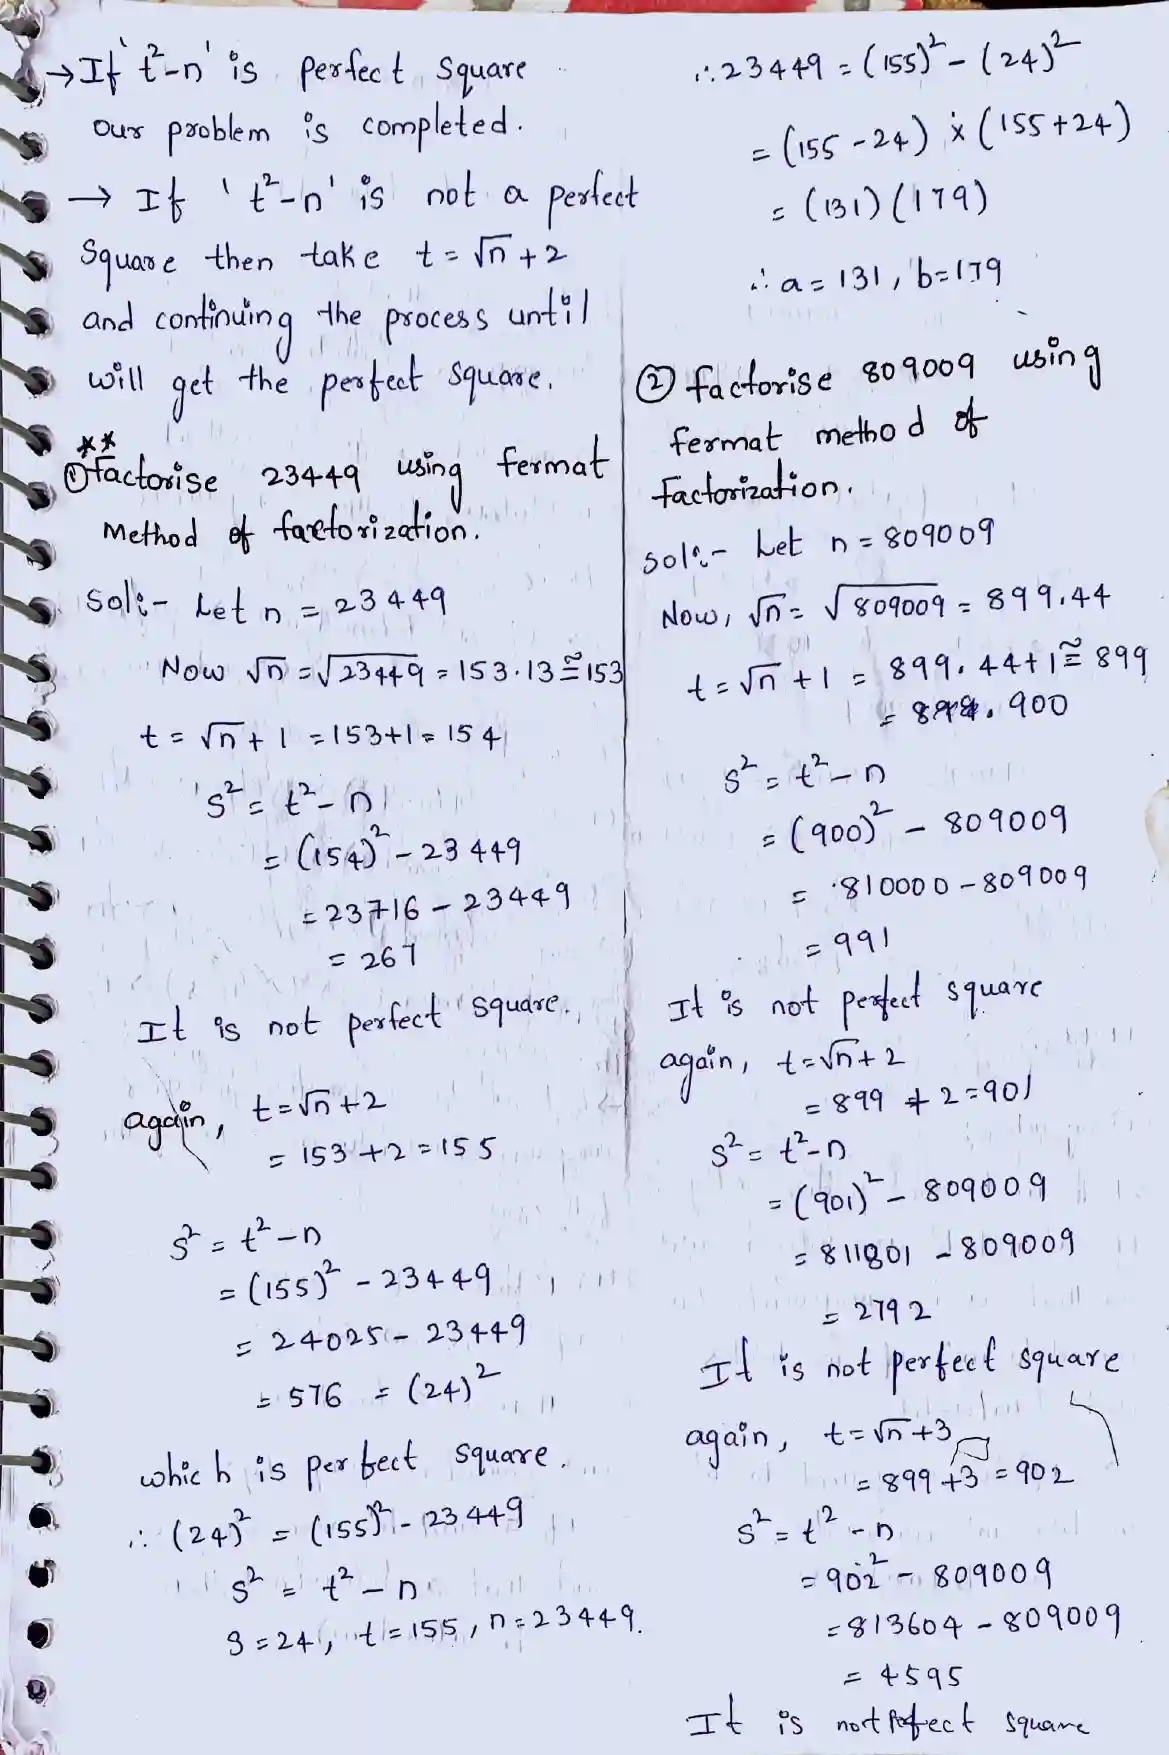 → If 't²-n' is perfect square
our problem is completed.
→ If 't²-n' is not a perfect
square then take t = √n + 2
and continuing the process until
will get the perfect square.
**
① factorise 23449 using fermat
Method of factorization.
Sol:- Let n = 23449
Now √n = √23449 = 153.13 ≅ 153
t = √n + 1 = 153+1 = 154
s² = t² - n
= (154)² - 23449
= 23716 - 23449
= 267
It is not perfect square.
again, t = √n + 2
= 153 + 2 = 155
s² = t² - n
= (155)² - 23449
= 24025 - 23449
= 576 = (24)²
which is perfect square.
∴ (24)² = (155)² - 23449
s² = t² - n
s = 24, t = 155, n = 23449.
∴ 23449 = (155)² - (24)²
= (155 - 24) × (155 + 24)
= (131) (179)
∴ a = 131, b = 179
② factorise 809009 using
fermat method of
factorization.
sol:- Let n = 809009
Now, √n = √809009 = 899.44
t = √n + 1 = 899.44 + 1 ≅ 899
= 900
s² = t² - n
= (900)² - 809009
= 810000 - 809009
= 991
It is not perfect square
again, t = √n + 2
= 899 + 2 = 901
s² = t² - n
= (901)² - 809009
= 811801 - 809009
= 2792
It is not perfect square
again, t = √n + 3
= 899 + 3 = 902
s² = t² - n
= 902² - 809009
= 813604 - 809009
= 4595
It is not Pefect square